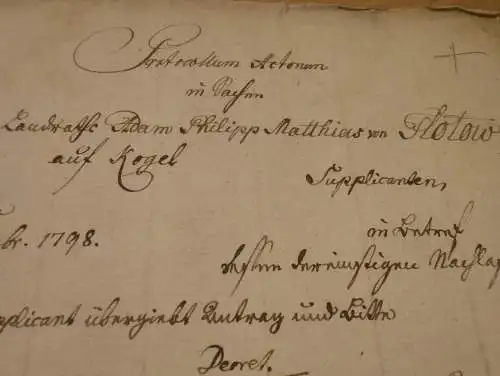 Protocollum Actorum
in Sachen
Landraths Adam Philipp Matthias von Flotow
auf Kogel
Supplicanten,
in Betref
br. 1798.
dessen dereinstigen Nachlaß
pplicant übergiebt Antrag und Bitte
Decret.